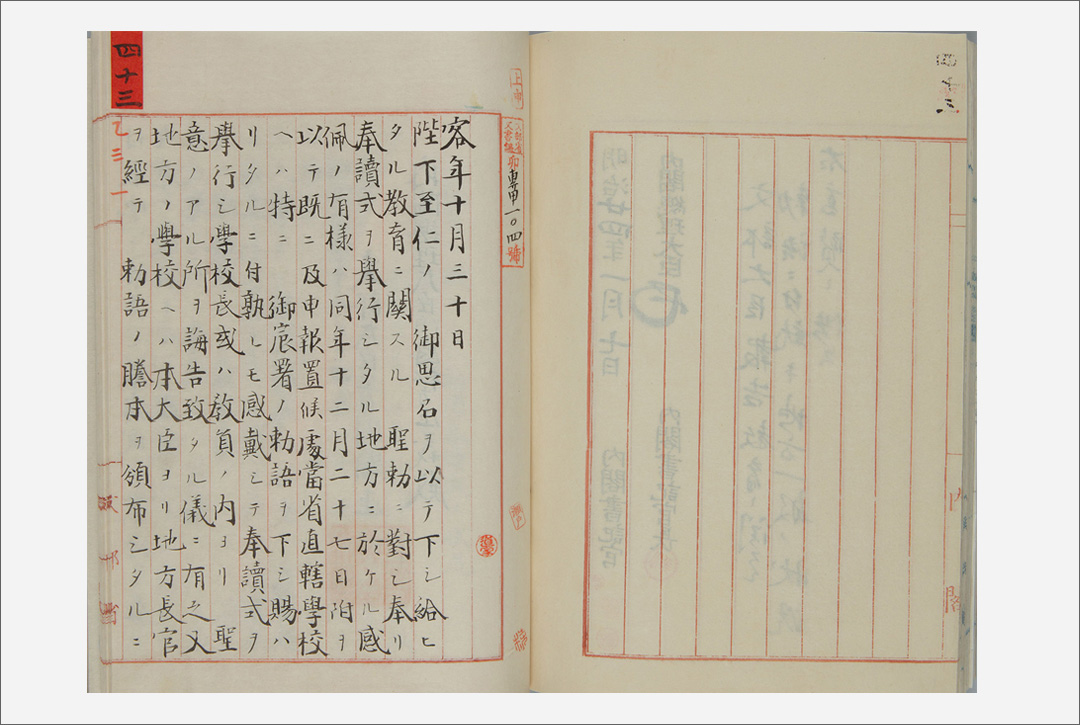 上申
專甲一〇四號
客年十月三十日
陛下至仁ノ御思召ヲ以テ下シ給ヒ
タル教育ニ關スル聖勅ニ對シ奉リ
奉讀式ヲ擧行シタル地方ニ於ケル感
佩ノ有樣ハ同年十二月二十七日附ヲ
以テ既ニ及申報置候處當省直轄學校
ヘハ特ニ御宸署ノ勅語ヲ下シ賜ハ
リタルニ付孰レモ感戴シテ奉讀式ヲ
擧行シ學校長或ハ敎員ノ内ヨリ聖
意ノアル所ヲ誨告致タル儀ニ有之又
地方ノ學校ヘハ本大臣ヨリ地方長官
ヲ經テ勅語ノ謄本ヲ頒布シタルニ
四十三
乙三一
文部省